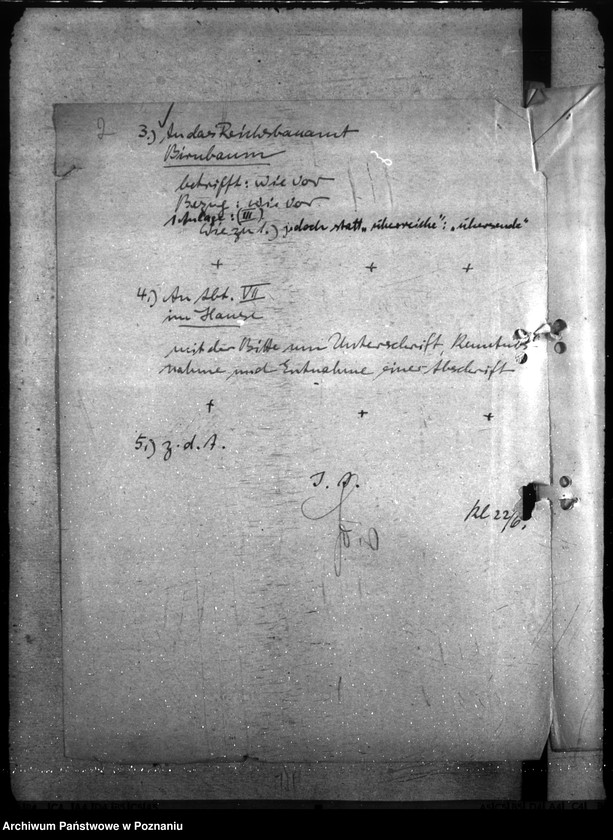 2
3.) An das Reichsbauamt
Birnbaum
betrifft: wie vor
Bezug: wie vor
1 Anlage: (III)
wie zu 1.) jedoch statt „überreiche“: „übersende“
+ + +
4.) An Abt. VII
im Hause
mit der Bitte um Unterschrift, Kenntnis-
nahme und Entnahme einer Abschrift
+ + +
5.) z. d. A.
I. A.
Kl 22/6.
Archiwum Państwowe w Poznaniu